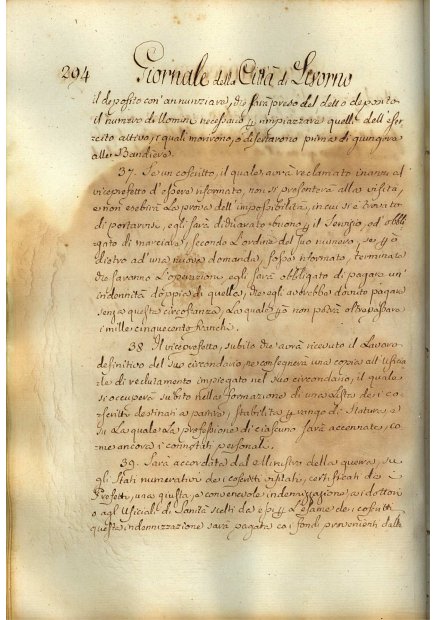 294 Giornale della Città di Livorno
il deposito con annunziare, che sarà preso dal detto deposito
il numero di Uomini necessario p. rimpiazzare quelli dell'eser-
cito attivo, i quali morirono, o disertarono prima di giungere
alle Bandiere.
37. Se un coscritto, il quale avrà reclamato inanzi al
viceprefetto d'essere riformato, non si presenterà alla visita,
e non esibirà la prova dell'impossibilità, in cui si è trovato
di portarvisi, egli sarà dichiarato buono p. il servizio, ed obbli-
gato di marciare, secondo l'ordine del suo numero, se, p.ò
dietro ad una nuova domanda, fosse riformato, terminate
che saranno l'operazioni, egli sarà obbligato di pagare un'
indennità doppia di quella, che egli avrebbe dovuto pagare
senza questa circostanza, la quale p.ò non potrà oltrepassare
i mille cinquecento franchi.
38. Il viceprefetto, subito che avrà ricevuto il Lavoro
definitivo del suo circondario, ne consegnerà una copia all'Uficia-
le di reclutamento impiegato nel suo circondario, il quale
si occuperà subito nella formazione di una Lista dei co-
scritti destinati a partire, stabilita p. rango di Statura, e
su la quale la professione di ciascuno sarà accennata, co-
me ancora i connotati personali.
39. Sarà accordita dal Ministro della guerra, su
gli Stati numerativi dei coscritti visitati, certificati da i
Prefetti, una giusta, e convenevole indennizazione ai dottori
o agl'Uficiali di Sanità scelti da essi p. l'esame dei coscritti
questa indennizzazione sarà pagata coi fondi provenienti dalle